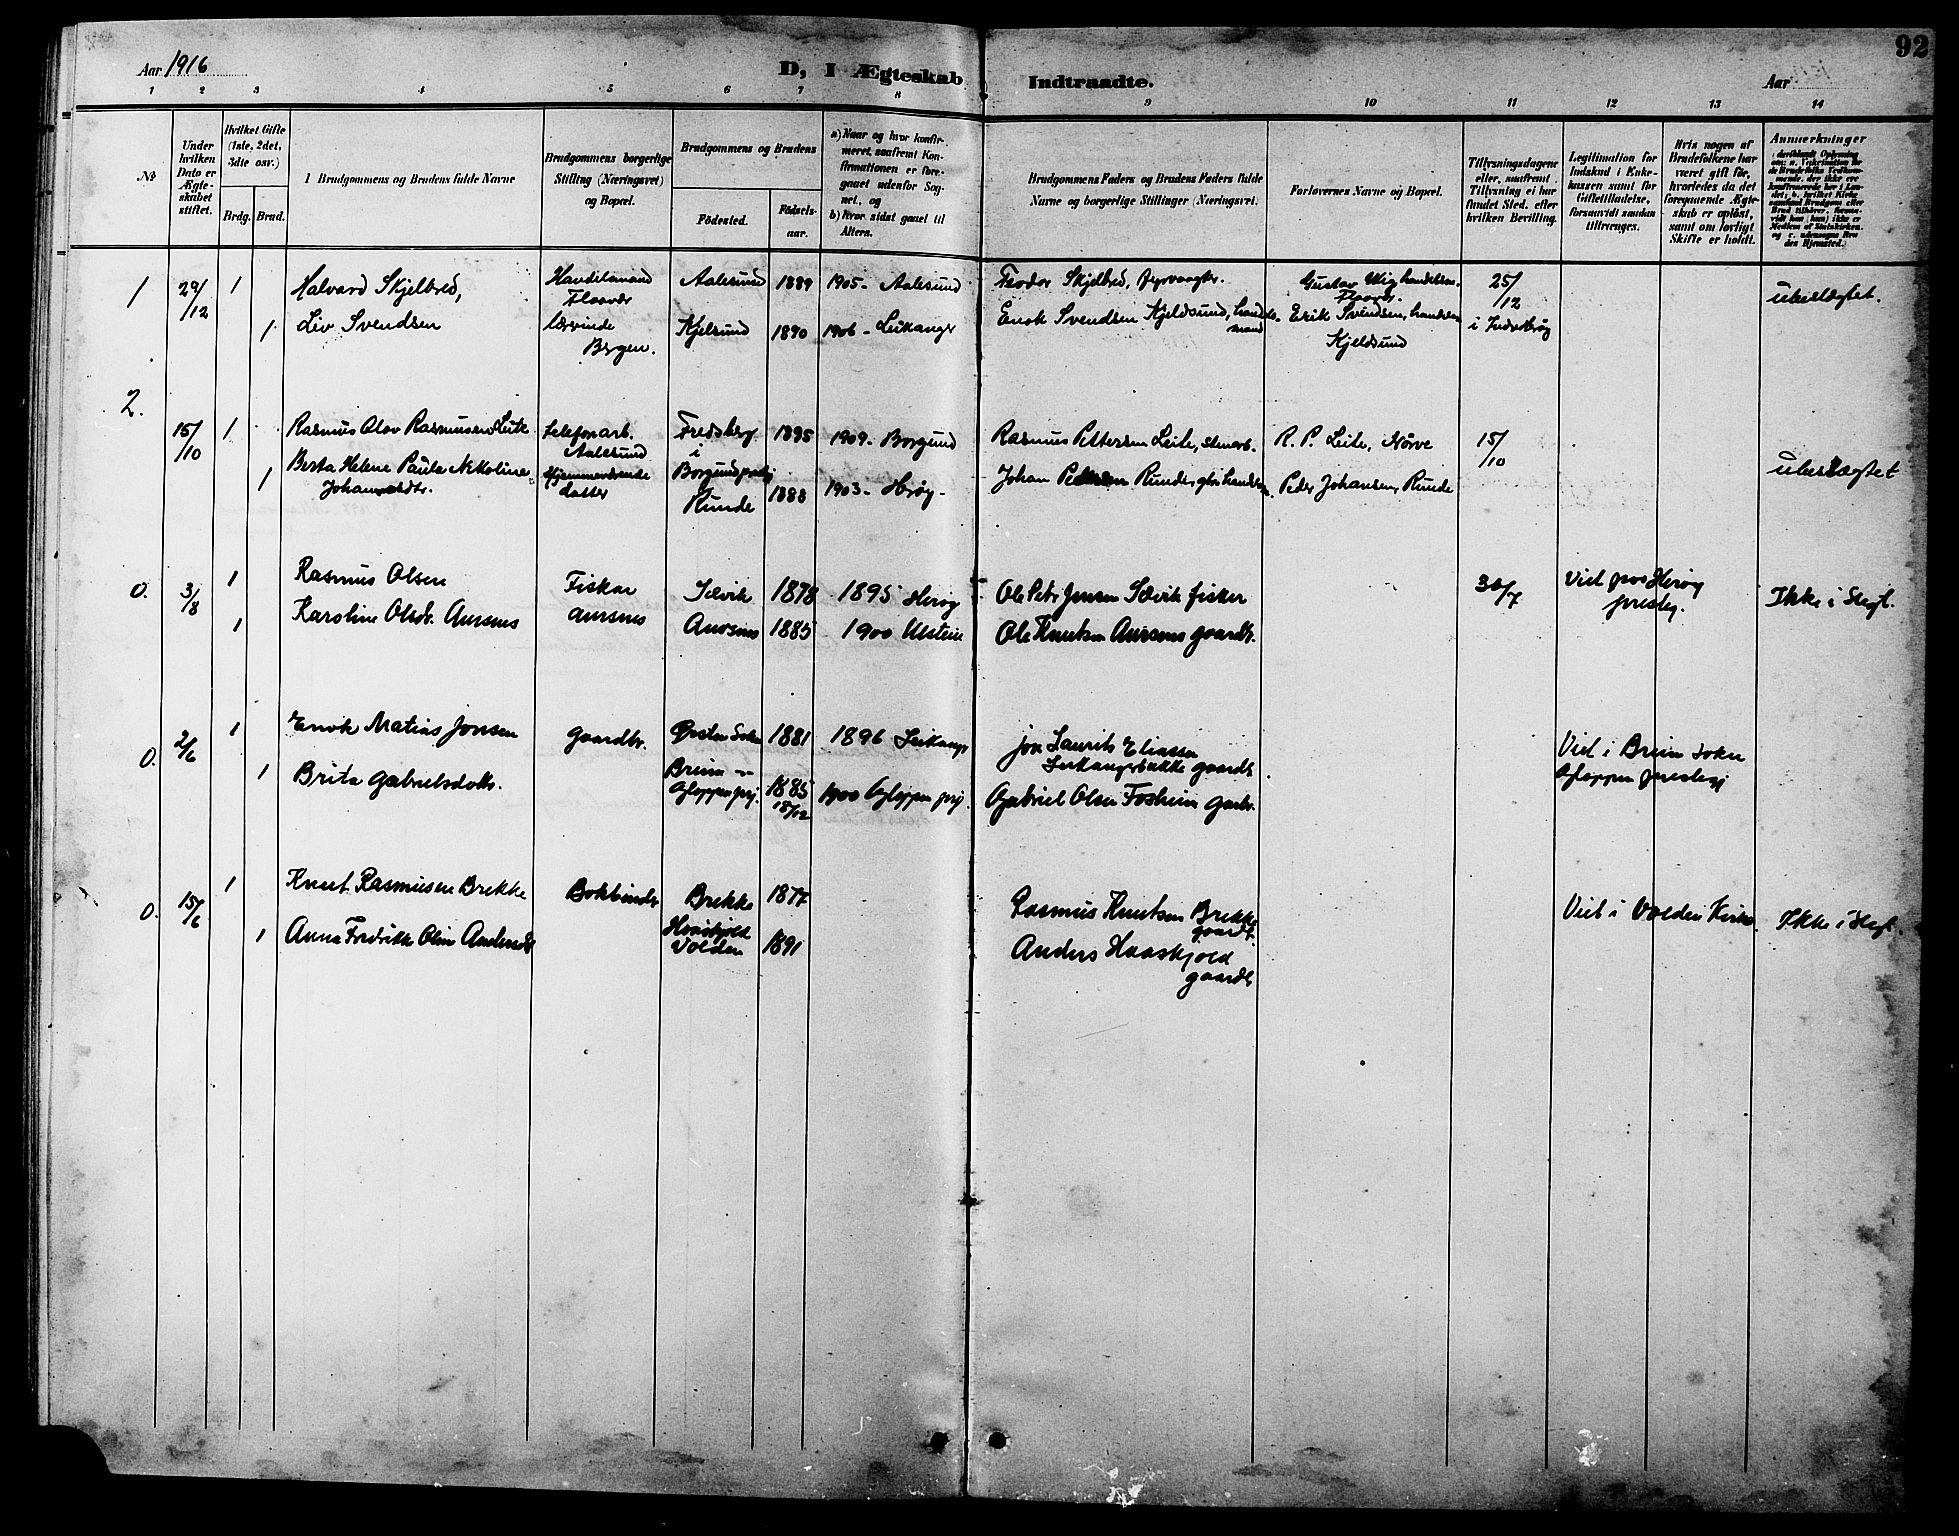 92
Aar 1916
D, I Ægteskab Indtraadte.
Aar
1 2 3 4 5 6 7 8 9 10 11 12 13 14
No
Under hvilken Dato er Ægteskabet stiftet.
Hvilket Gifte (1ste, 2det, 3die osv.)
Brdg. Brud.
1 Brudgommens og Brudens fulde Navne
Brudgommens borgerlige Stilling (Næringsvei) og Bopæl.
Brudgommens og Brudens
Födested.
Födselsaar.
a) Naar og hvor konfirmeret, saafremt Konfirmationen er foregaaet udenfor Sognet, og
b) hvor sidst gaaet til Alters.
Brudgommens Faders og Brudens Faders fulde Navne og borgerlige Stillinger (Næringsvei.
Forlovernes Navne og Bopæl.
Tillysningsdagene eller, saafremt Tillysning ei har fundet Sted, efter hvilken Bevilling.
Legitimation for Indskud i Enkekassen samt for Giftetilladelse, forsaavidt saadan tiltrænges.
Hvis nogen af Brudefolkene har været gift før, hvorledes da det foregaaende Ægteskab er opløst, samt om lovligt Skifte er holdt.
Anmerkninger
1 29/12 1 Halvard Skjelbred, Aalesund 1889 1905- Aalesund Feodor Skjelbred, fyrvaagtr. Gustav Wig handelsm. Flaavær. 25/12 ubeslægtet.
1 Liv Svendsen lærvinde Bergen. Kjelsund 1890 1906- Leikanger Enok Svendsen Kjeldsund, handelsmand Erik Svendsen, Kjeldsund
2. 15/10 1 Rasmus Olav Rasmussen Leite telefonarb. Aalesund Fredsberg i 1895 1909- Borgund Rasmus Pettersen Leite, stenarb. R. P. Leite, Nørve 15/10
1 Berta Helene Paula Nikoline Johansdtr. Hjemmeværende datter Runde 1888 1903- Herøy- Johan Pedersen Runde, Peder Johansen, Runde ubeslægtet
0. 3/8 1 Rasmus Olsen Fisker Aursnes 1878 1895 Herøy Ole Petr Jensen fisker 30/7 Viet paa Herøy presteg. Ikke i Slegt.
1 Karoline Olsdr. Aursnes Aursnes 1885 1900 Ulstein Ole Knutsen Aursnes gaardbr.
0. 2/6 1 Enok Matias Jonsen gaardbr. Ørsten Sokn 1881 1896 Leikanger Jon Laurits Eliassen Leikangerbakke gaardb. Viet i Breim sokn Gloppen prestegj
1 Brita Gabrielsdotr. Breim Gloppen prj. 1885 15/12 1900 Gloppen prj. Gabriel Olsen Fosheim gardbr.
0. 15/6 1 Knut Rasmusen Brekke Bokbinder Brekke 1877 Rasmus Knutsen Brekke gaardb. Viet i Volden Kirke. Ikke i Slegt.
1 Anna Fredrikke Olin Andersdt Volden 1891 Anders Haaskjold gaardb